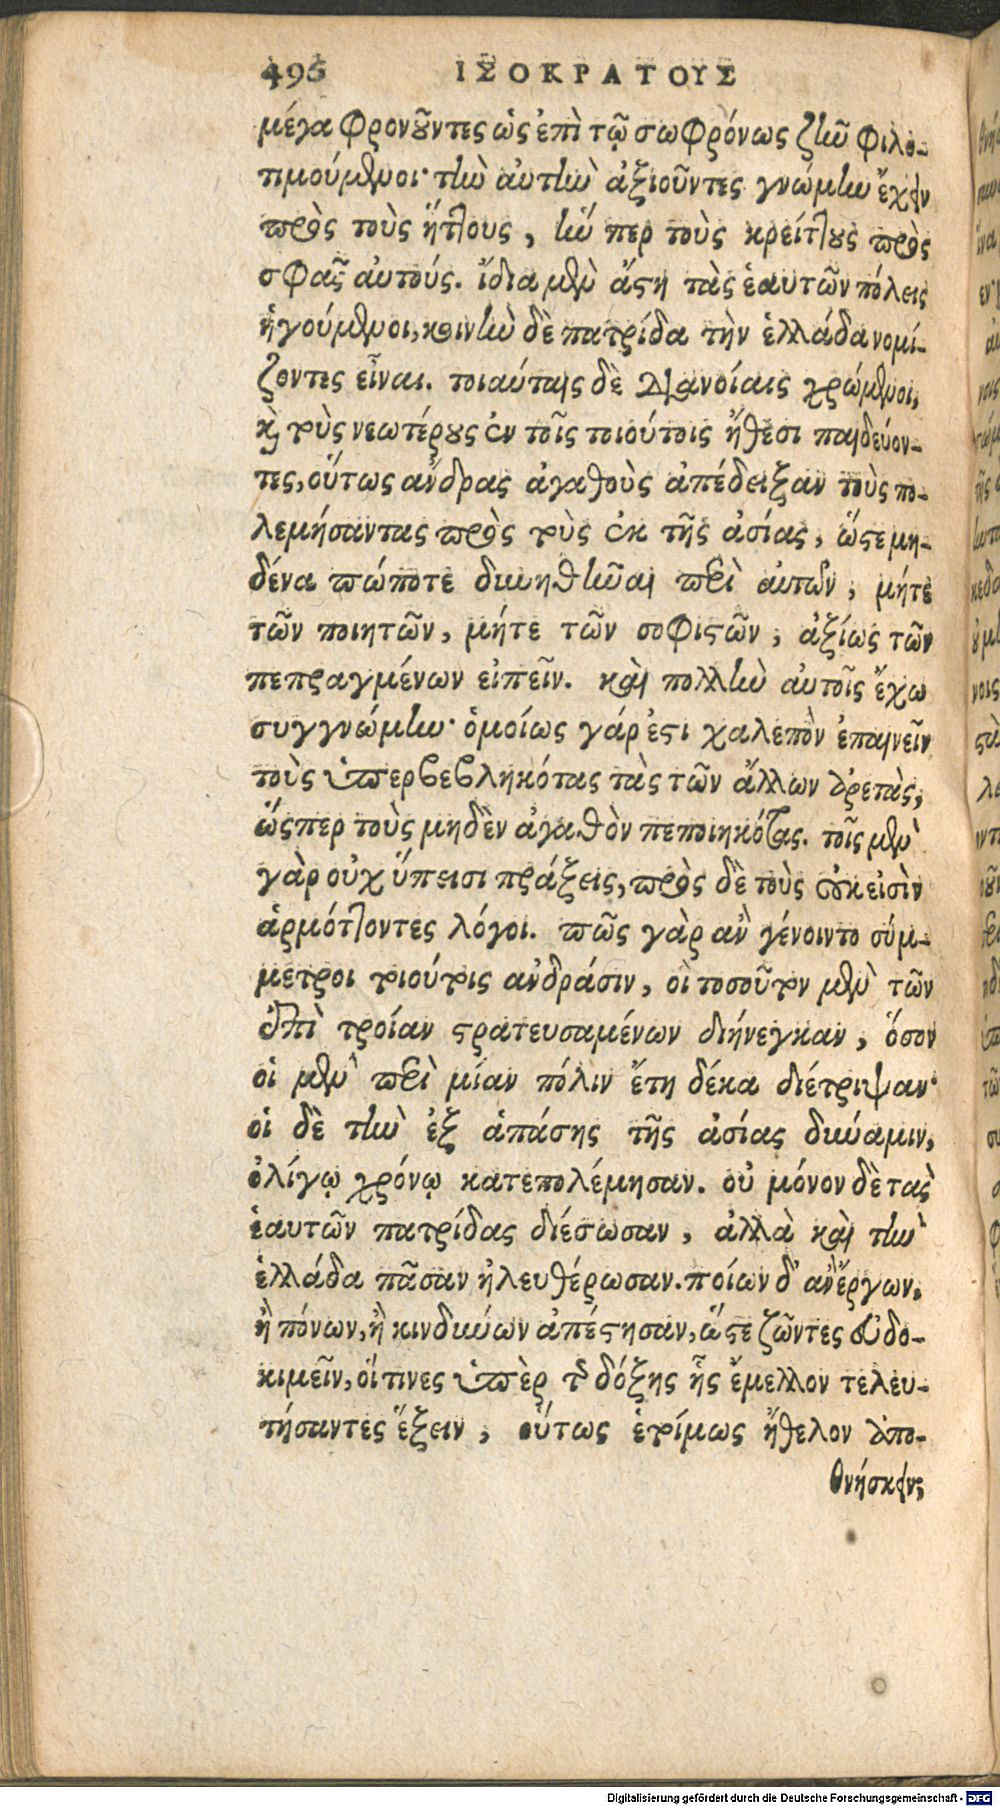 496 ΙΣΟΚΡΑΤΟΥΣ
μέγα φρονοῦντες ὡς ἐπὶ τῷ σωφρόνως ζῆν φιλο-
τιμούμενοι· τὴν αὐτὴν ἀξιοῦντες γνώμην ἔχειν
πρὸς τοὺς ἥττους, ἥν περ τοὺς κρείττους πρὸς
σφᾶς αὐτούς. ἴδια μὲν ἄστη τὰς ἑαυτῶν πόλεις
ἡγούμενοι, κοινὴν δὲ πατρίδα τὴν ἑλλάδα νομί-
ζοντες εἶναι. τοιαύταις δὲ διανοίαις χρώμενοι,
καὶ τοὺς νεωτέρους ἐν τοῖς τοιούτοις ἤθεσι παιδεύον-
τες, οὕτως ἄνδρας ἀγαθοὺς ἀπέδειξαν τοὺς πο-
λεμήσαντας πρὸς τοὺς ἐκ τῆς ἀσίας, ὥστε μη-
δένα πώποτε δυνηθῆναι περὶ αὐτῶν, μήτε
τῶν ποιητῶν, μήτε τῶν σοφιστῶν, ἀξίως τῶν
πεπραγμένων εἰπεῖν. καὶ πολλὴν αὐτοῖς ἔχω
συγγνώμην· ὁμοίως γάρ ἐστι χαλεπὸν ἐπαινεῖν
τοὺς ὑπερβεβληκότας τὰς τῶν ἄλλων ἀρετὰς,
ὥσπερ τοὺς μηδὲν ἀγαθὸν πεποιηκότας. τοῖς μὲν
γὰρ οὐχ ὕπεισι πράξεις, πρὸς δὲ τοὺς οὐκ εἰσὶν
ἁρμόττοντες λόγοι. πῶς γὰρ ἂν γένοιντο σύμ-
μετροι τοιούτοις ἀνδράσιν, οἳ τοσοῦτον μὲν τῶν
ἐπὶ τροίαν στρατευσαμένων διήνεγκαν, ὅσον
οἱ μὲν περὶ μίαν πόλιν ἔτη δέκα διέτριψαν·
οἱ δὲ τὴν ἐξ ἁπάσης τῆς ἀσίας δύναμιν,
ὀλίγῳ χρόνῳ κατεπολέμησαν. οὐ μόνον δὲ τὰς
ἑαυτῶν πατρίδας διέσωσαν, ἀλλὰ καὶ τὴν
ἑλλάδα πᾶσαν ἠλευθέρωσαν. ποίων δ' ἂν ἔργων,
ἢ πόνων, ἢ κινδύνων ἀπέστησαν, ὥστε ζῶντες εὐδο-
κιμεῖν, οἵτινες ὑπὲρ τῆς δόξης ἧς ἔμελλον τελευ-
τήσαντες ἕξειν, οὕτως ἑτοίμως ἤθελον ἀπο-
θνήσκειν;
Digitalisierung gefördert durch die Deutsche Forschungsgemeinschaft - DFG